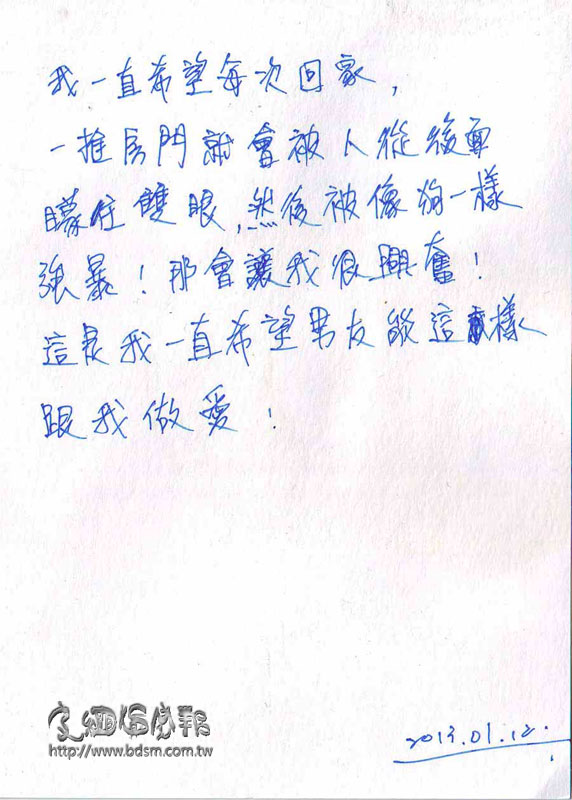 我一直希望每次回家,
一推房門就會被人從後面
矇住雙眼,然後被像狗一樣
強暴!那會讓我很興奮!
這是我一直希望男友能這樣
跟我做愛!
http://www.bdsm.com.tw
2013.01.12.